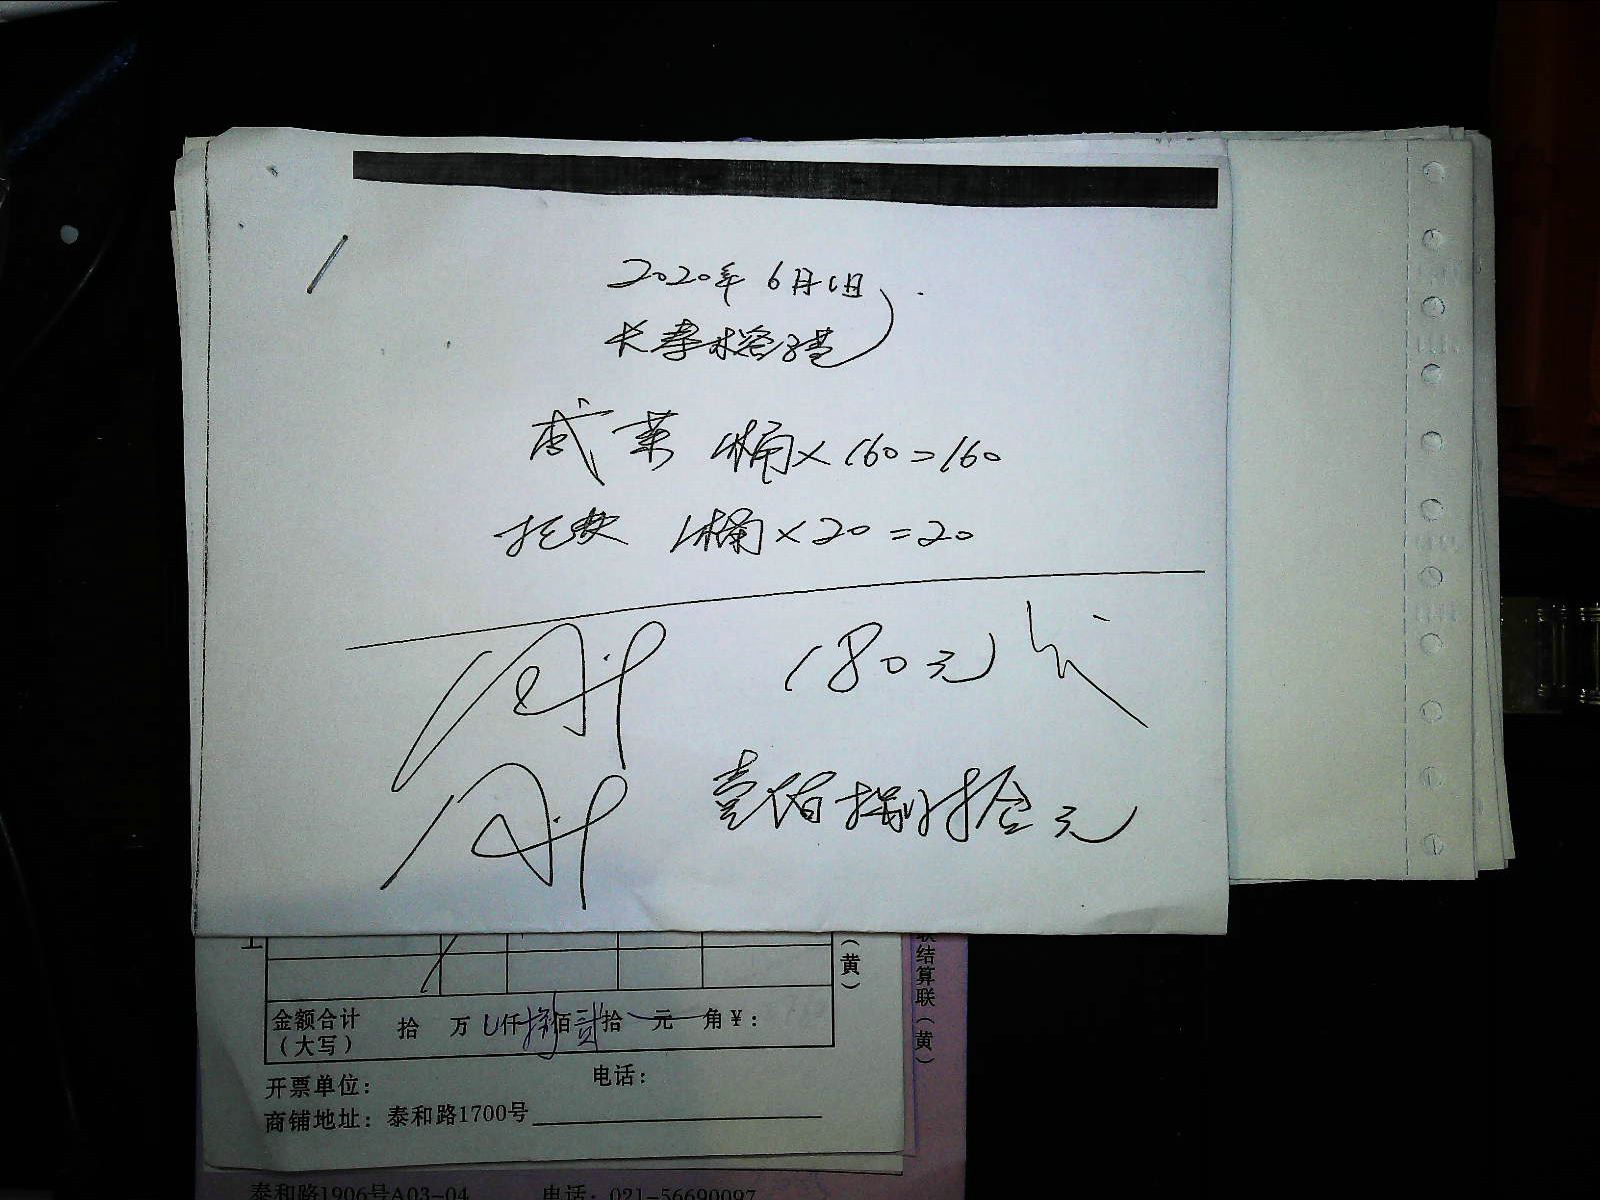 2020年6月1日
咸菜 1桶×160=160
1桶×20=20
180元
壹佰捌拾元
(黄)
联结算联(黄)
金额合计
(大写)
拾 万 仟捌佰贰拾 元 角¥:
开票单位:
电话:
商铺地址:泰和路1700号
泰和路1906号A03-04 电话:021-56690097